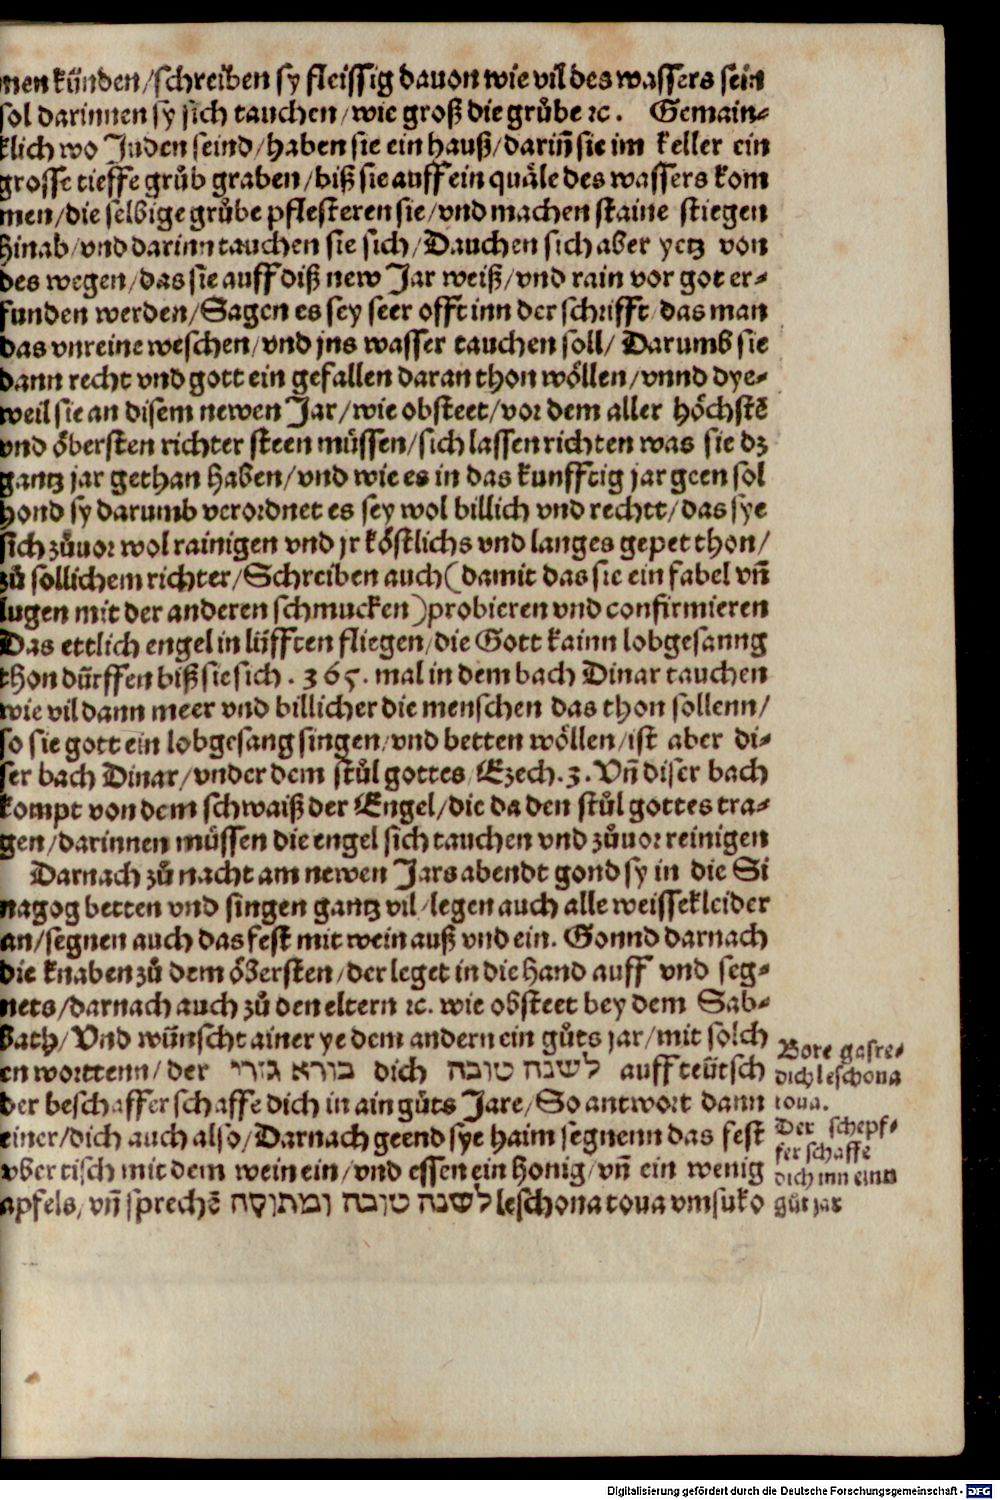 men künden/schreiben sy fleissig dauon wie vil des wassers sein
sol darinnen sy sich tauchen/wie groß die grůbe ꝛc. Gemain⸗
klich wo Juden seind/haben sie ein hauß/dariñ sie im keller ein
grosse tieffe grůb graben/biß sie auff ein quäle des wassers kom
men/die selbige grůbe pflesteren sie/vnd machen staine stiegen
hinab/vnd darinn tauchen sie sich/Dauchen sich aber yetz von
des wegen/das sie auff diß new Jar weiß/vnd rain vor got er⸗
funden werden/Sagen es sey seer offt inn der schrifft/das man
das vnreine weschen/vnd jns wasser tauchen soll/Darumb sie
dann recht vnd gott ein gefallen daran thon wöllen/vnnd dye⸗
weil sie an disem newen Jar/wie obsteet/vor dem aller höchstē
vnd öbersten richter steen müssen/sich lassen richten was sie dz
gantz jar gethan haben/vnd wie es in das kunfftig jar geen sol
hond sy darumb verordnet es sey wol billich vnd rechtt/das sye
sich zůuor wol rainigen vnd jr köstlichs vnd langes gepet thon/
zů sollichem richter/Schreiben auch(damit das sie ein fabel vñ
lugen mit der anderen schmucken)probieren vnd confirmieren
Das ettlich engel in lüfften fliegen/die Gott kainn lobgesanng
thon dürffen biß sie sich .365. mal in dem bach Dinar tauchen
wie vil dann meer vnd billicher die menschen das thon sollenn/
so sie gott ein lobgesang singen/vnd betten wöllen/ist aber di⸗
ser bach Dinar/vnder dem stůl gottes/Ezech.3. Vñ diser bach
kompt von dem schwaiß der Engel/die da den stůl gottes tra⸗
gen/darinnen müssen die engel sich tauchen vnd zůuor reinigen
Darnach zů nacht am newen Jars abendt gond sy in die Si
nagog betten vnd singen gantz vil/legen auch alle weisse kleider
an/segnen auch das fest mit wein auß vnd ein. Gonnd darnach
die knaben zů dem öbersten/der leget in die hand auff vnd seg⸗
nets/darnach auch zů den eltern ꝛc. wie obsteet bey dem Sab⸗
bath/Vnd wünscht ainer ye dem andern ein gůts jar/mit solch
en worttenn/der בורא גזרי dich לשנה טובה auff teütsch
der beschaffer schaffe dich in ain gůts Jare/So antwort dann
einer/dich auch also/Darnach geend sye haim segnenn das fest
vber tisch mit dem wein ein/vnd essen ein honig/vñ ein wenig
apfels/vñ sprechē לשנה טובה ומתוקה leschona toua vmsuko
Bore gasre⸗
dich leschona
toua.
Der schepf⸗
fer schaffe
dich inn eins
gůt jar
Digitalisierung gefördert durch die Deutsche Forschungsgemeinschaft - DFG